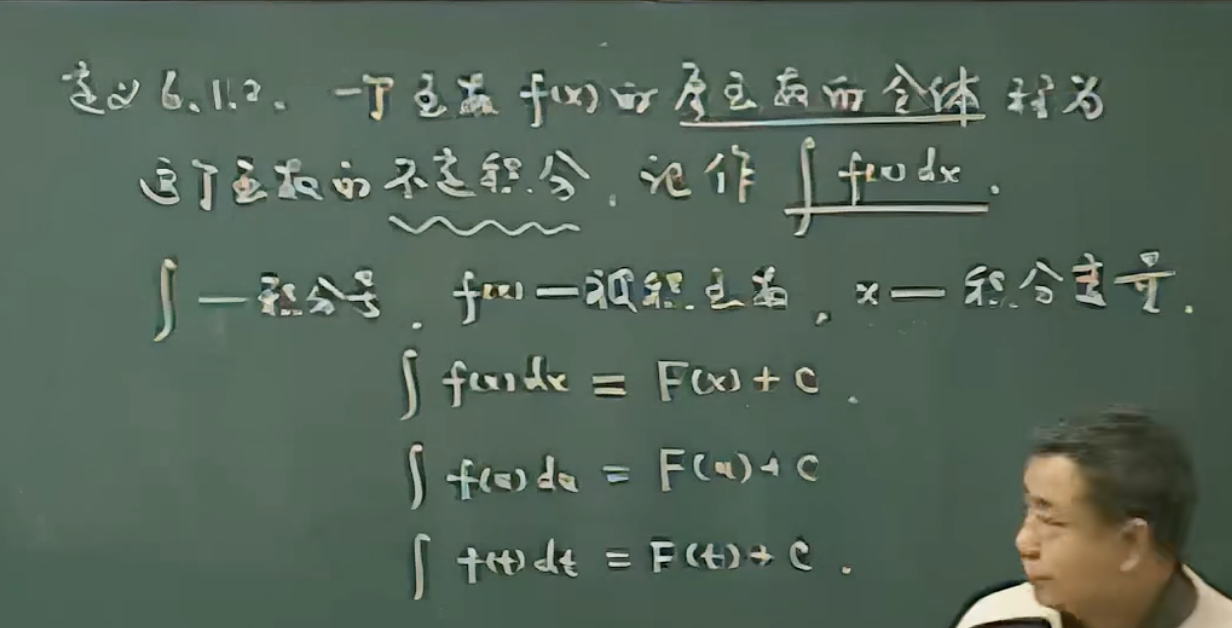 定义 6.1.2. 一个函数 f(x) 的原函数的全体称为
这个函数的不定积分, 记作 ∫ f(x) dx.
∫ — 积分号, f(x) — 被积函数, x — 积分变量.
∫ f(x) dx = F(x) + C.
∫ f(u) du = F(u) + C
∫ f(t) dt = F(t) + C.